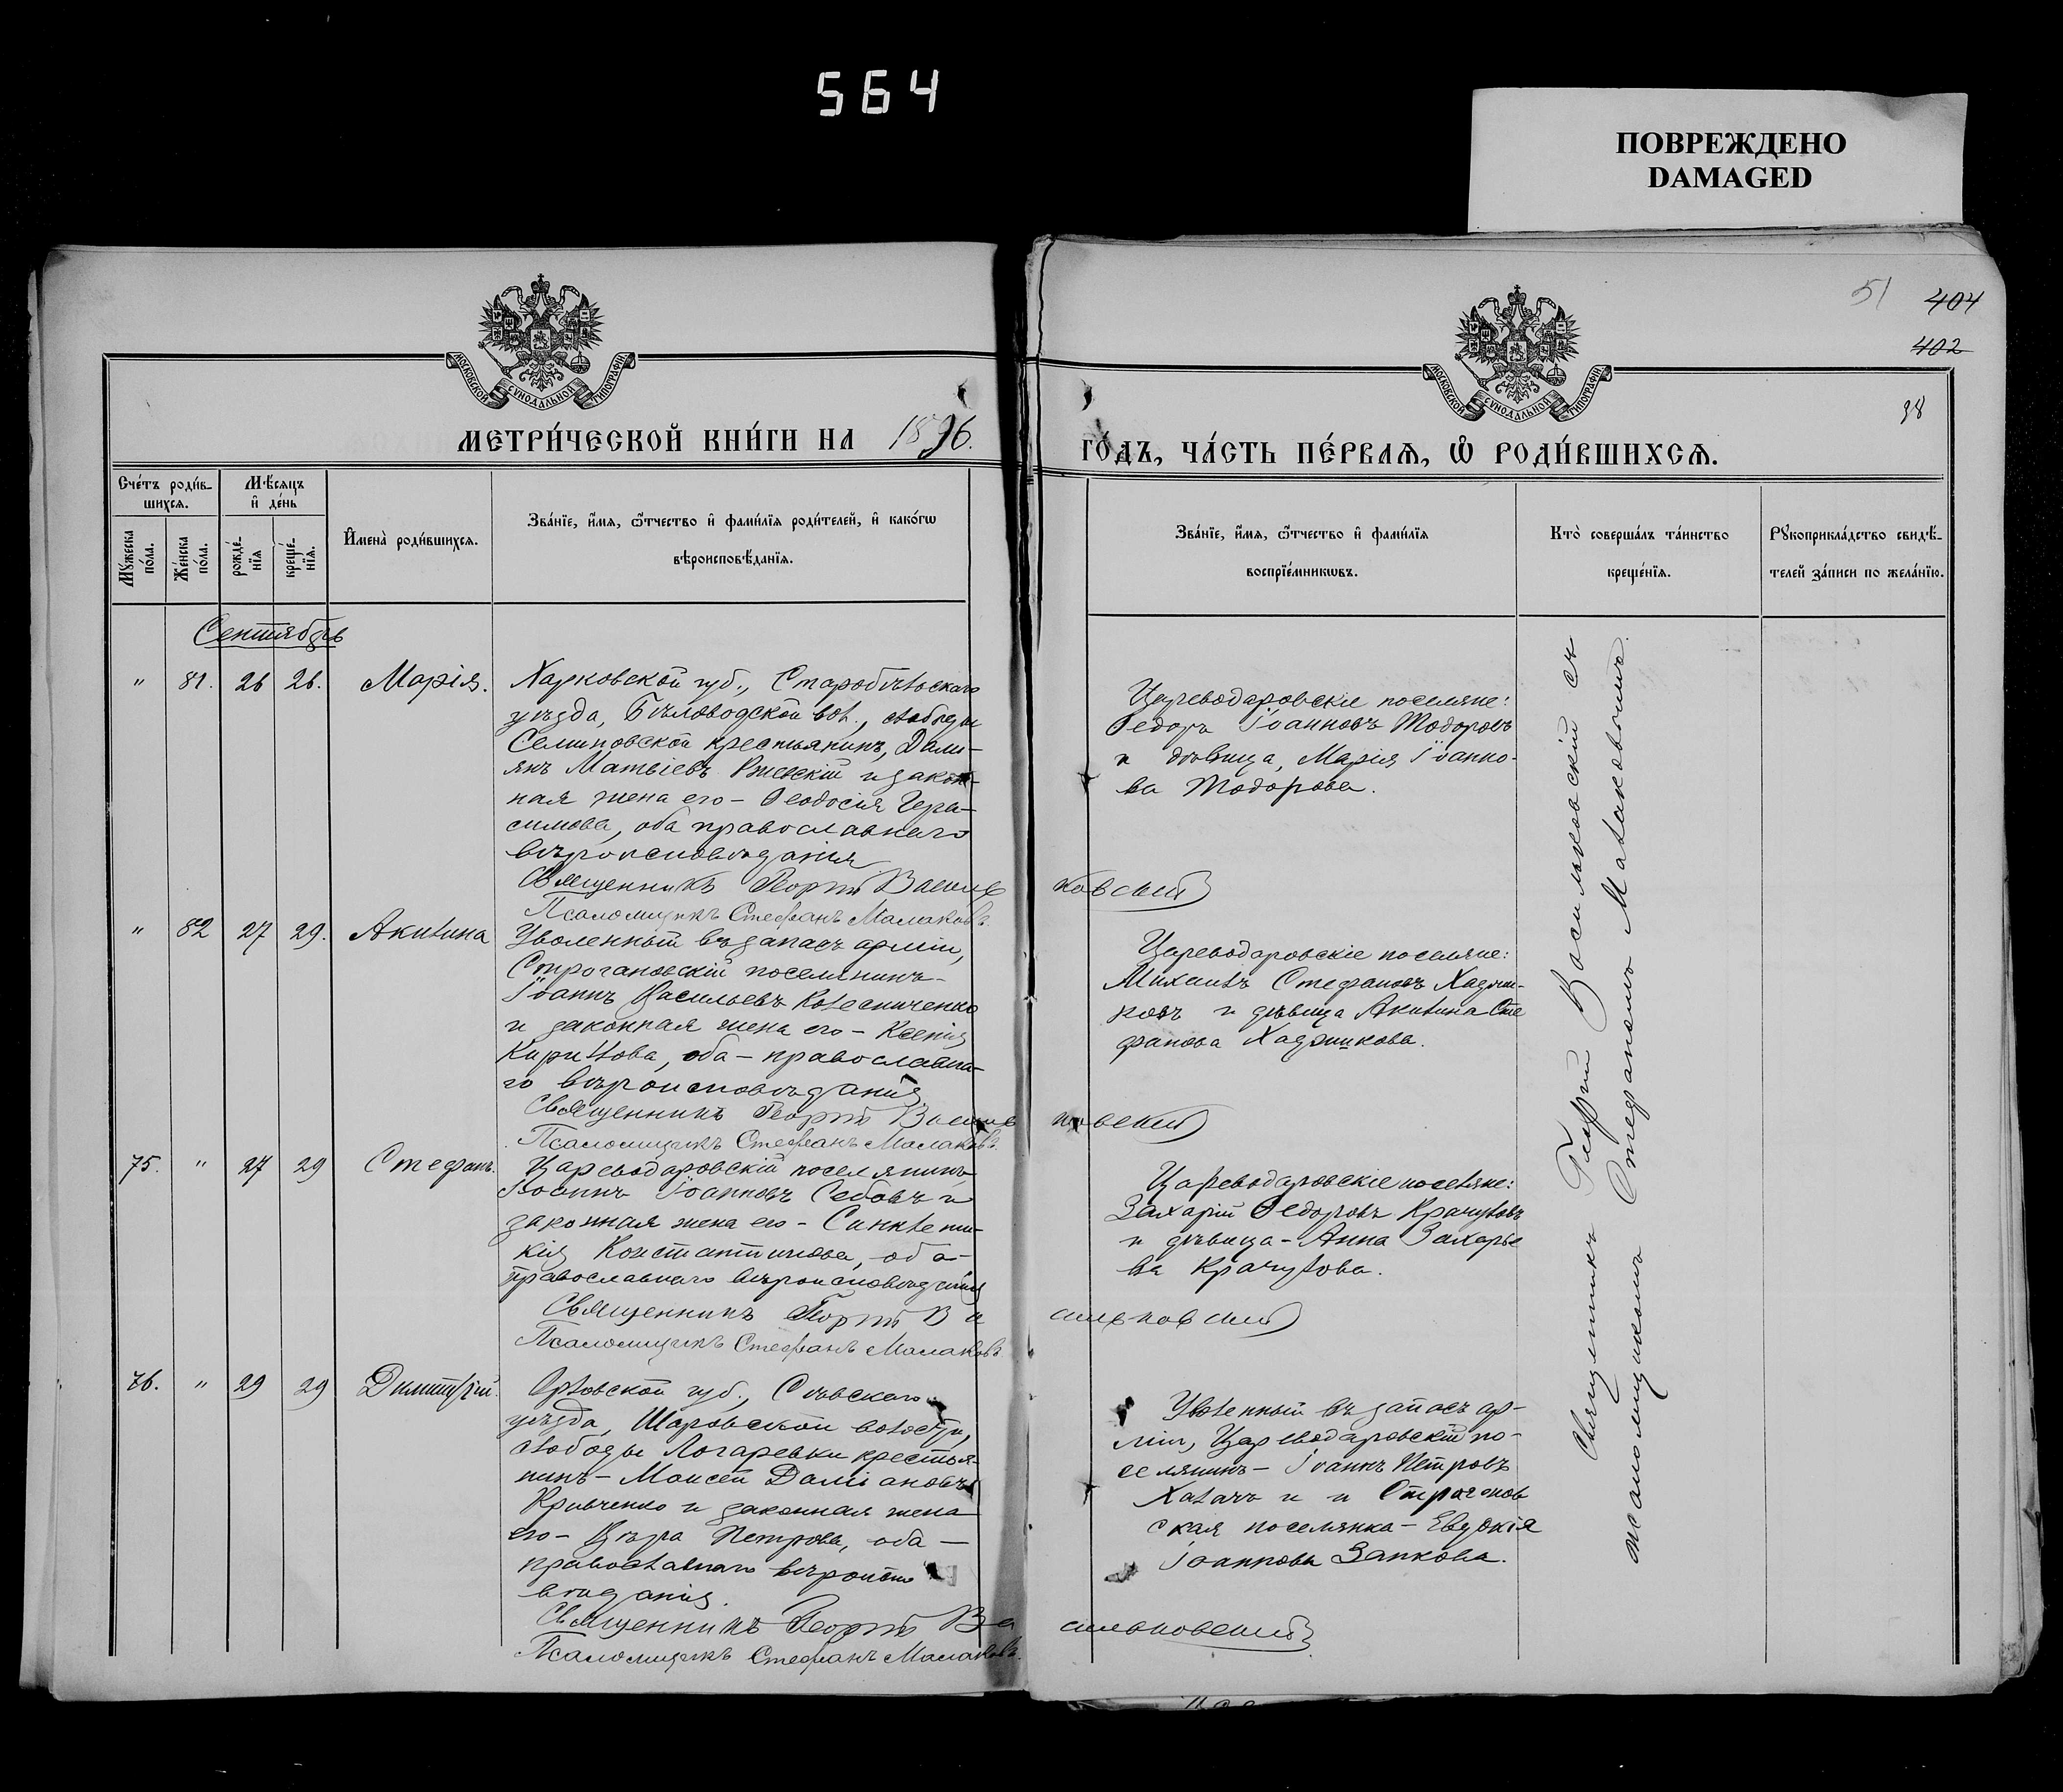 564
ПОВРЕЖДЕНО
DAMAGED
51 404
402
98
МОСКОВСКОЙ СѴНОДАЛЬНОЙ ТИПОГРАФІИ
МОСКОВСКОЙ СѴНОДАЛЬНОЙ ТИПОГРАФІИ
МЕТРИ́ЧЕСКОЙ КНИ́ГИ НА 1896.
ГО́ДЪ, ЧА́СТЬ ПЕ́РВАЯ, Ѡ҆ РОДИ́ВШИХСЯ.
Сче́тъ роди́в-
шихся.
Мѹ́жеска по́ла.
Же́нска по́ла.
Мѣ́сяцъ
и҆ де́нь
рожде́-
нїя
креще́-
нїя.
И҆мена̀ роди́вшихся.
Зва́нїе, и҆́мя, ѻ҆́тчество и҆ фами́лїя роди́телей, и҆ како́гѡ
вѣроисповѣ́данїя.
Зва́нїе, и҆́мя, ѻ҆́тчество и҆ фами́лїя
воспрїе́мникѡвъ.
Кто̀ соверша́лъ та́инство
креще́нїя.
Рѹкоприкла́дство свидѣ́-
телей за́писи по жела́нїю.
Сентябрь
" 81. 26 26. Марія.
Харковской губ., Старобѣльскаго
уѣзда, Бѣловодской вол., слободы
Семиковской крестьянинъ, Дамі-
янъ Матвіевъ Ржевскій и закон-
ная жена его – Ѳеодосія Гера-
симова, оба православнаго
вѣроисповѣданія
Священникъ Георгій Василь
ковскій
Псаломщикъ Стефанъ Малаковъ.
Цареводаровскіе поселяне:
Ѳедоръ Іоанновъ Тодоровъ
и дѣвица, Марія Іоанно-
ва Тодорова.
" 82 27 29. Акилина
Уволенный въ запасъ арміи,
Строгановскій поселянинъ –
Іоаннъ Васильевъ Колесниченко
и законная жена его – Ксенія
Кириллова, оба – православна-
го вѣроисповѣданія
Священникъ Георгій Василь
ковскій
Псаломщикъ Стефанъ Малаковъ.
Цареводаровскіе поселяне:
Михаилъ Стефановъ Хаджи-
ковъ и дѣвица Акилина Сте
фанова Хаджикова.
75. " 27 29 Стефанъ.
Цареводаровскій поселянинъ
Іоаннъ Іоанновъ Себовъ и
законная жена его – Синклети-
кія Константинова, оба –
православнаго вѣроисповѣданія
Священникъ Георгій Ва
сильковскій
Псаломщикъ Стефанъ Малаковъ
Цареводаровскіе поселяне:
Захарій Ѳедоровъ Крачуловъ
и дѣвица – Анна Захарье
ва Крачулова.
76. " 29 29 Димитрій.
Орловской губ., Сѣвскаго
уѣзда, Шаровской волости,
слободы Логаревки крестья-
нинъ – Моисей Даміановъ
Кривченко и законная жена
его – Вѣра Петрова, оба –
православнаго вѣроиспо
вѣданія.
Священникъ Георгій Ва
сильковскій
Псаломщикъ Стефанъ Малаковъ.
Уволенный въ запасъ ар-
міи, Цареводаровскій по-
селянинъ – Іоаннъ Петровъ
Халачъ и и Строганов
ская поселянка – Евдокія
Іоаннова Запкова.
Священникъ Георгій Васильковскій съ
псаломщикомъ Стефаномъ Малаковымъ.